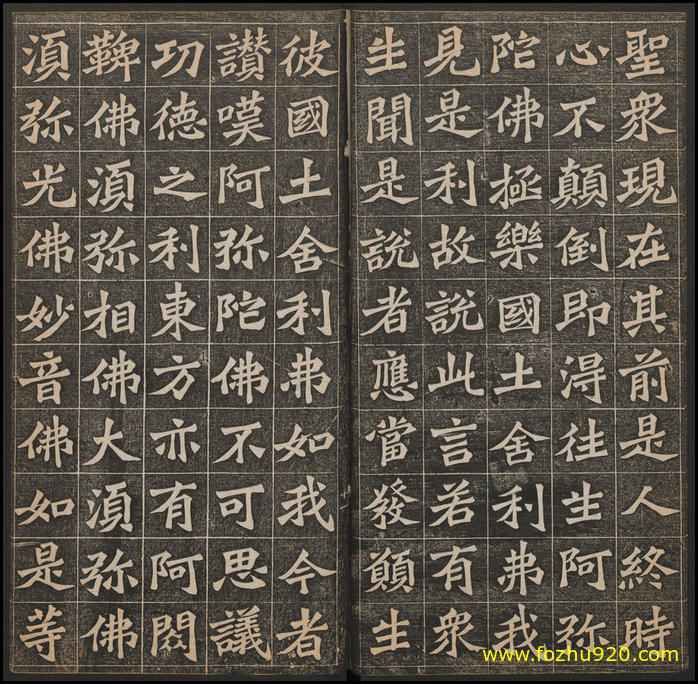 聖眾現在其前是人終時
心不顛倒即淂往生阿弥
陀佛極樂國土舍利弗我
見是利故說此言若有眾
生聞是說者應當發願生
彼國土舍利弗如我今者
讃嘆阿弥陀佛不可思議
功德之利東方亦有阿閦
鞞佛湏弥相佛大湏弥佛
湏弥光佛妙音佛如是等
www.fozhu920.com